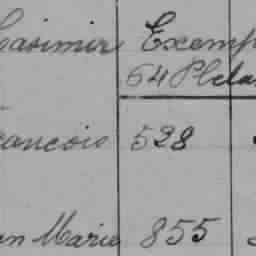 Casimir Exemp
64 Pl
rancois 528
an Marie 855